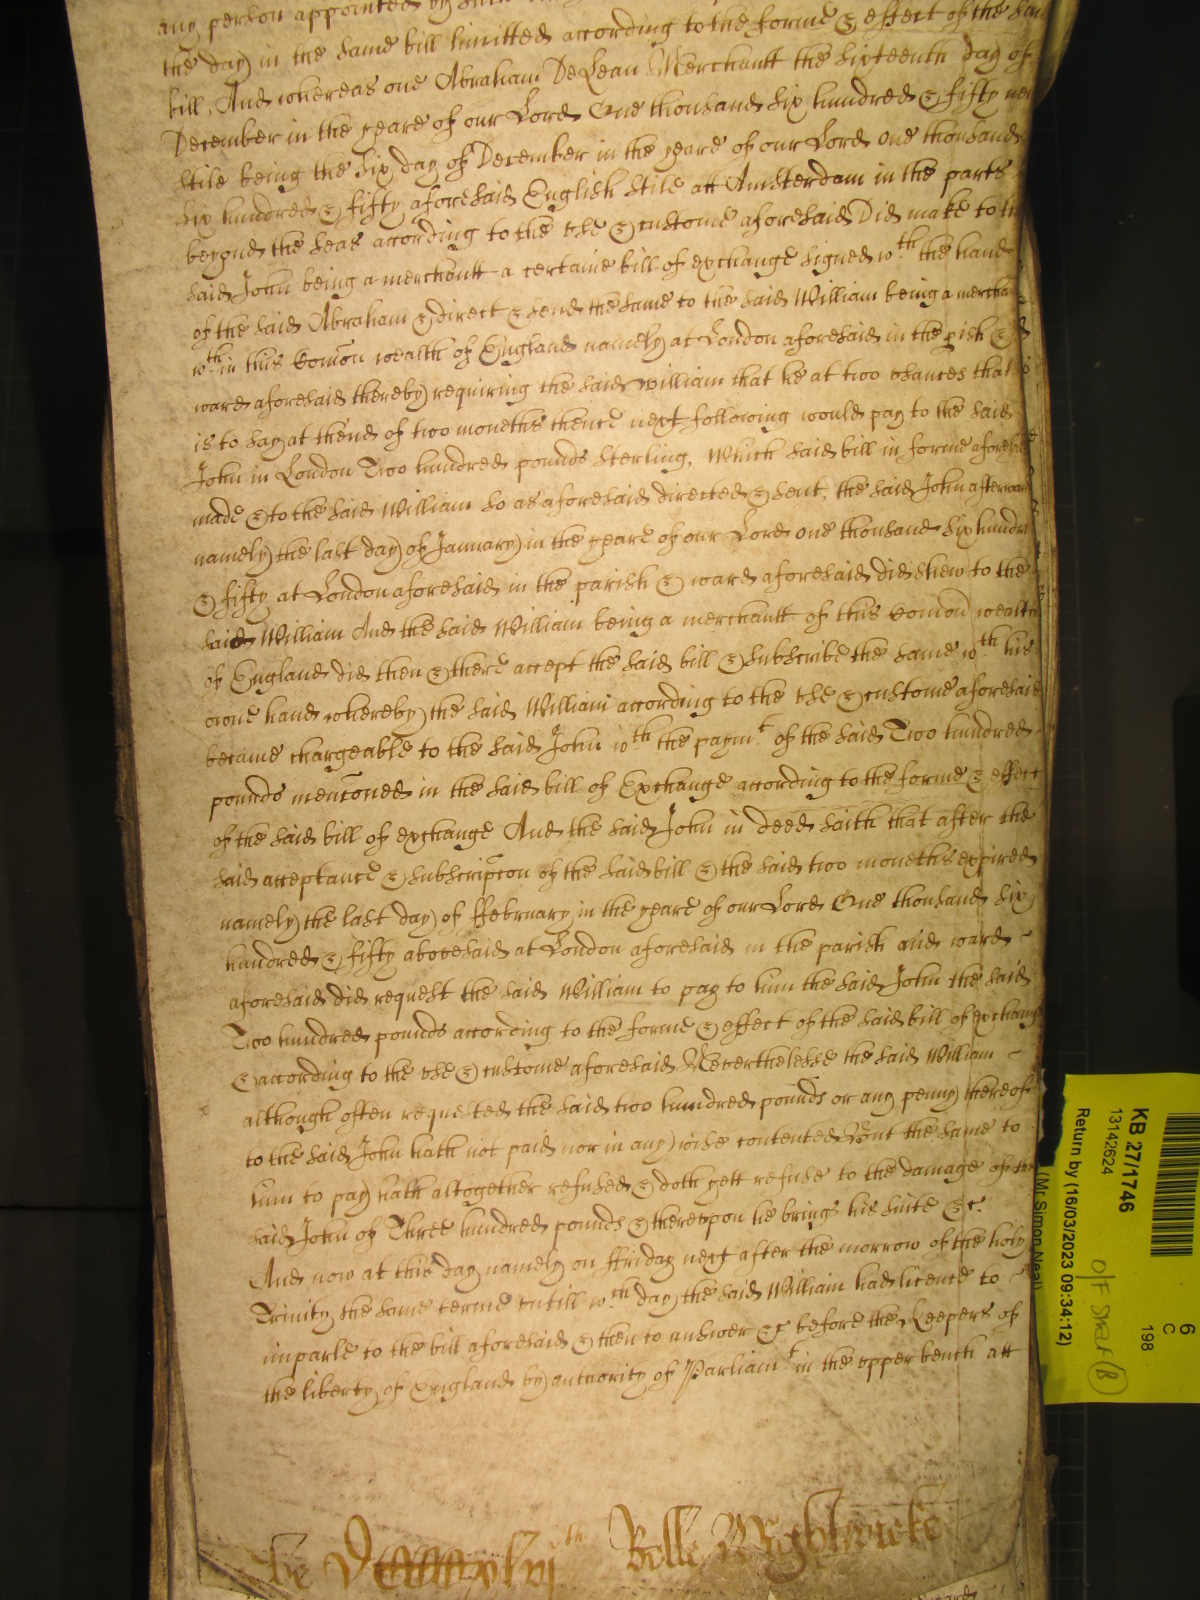 any person appointed by such
the day in the same bill limitted according to the forme & effect of the said
bill, And whereas one Abraham DeLean Merchantt the sixteenth day of
December in the yeare of our Lord One thousand six hundred & fifty new
stile being the six day of December in the yeare of our Lord one thousand
six hundred & fifty aforesaid English stile att Amsterdam in the parts
beyond the seas according to the vse & custome aforesaid Did make to the
said John being a merchantt a certaine bill of exchange signed wth the hand
of the said Abraham & direct & send the same to the said William being a mercha
wthin this Comon wealth of England namely at London aforesaid in the pish &
ward aforesaid thereby requiring the said William that he at two vsances that
is to say at thend of two moneths thence next following would pay to the said
John in London Two hundred pounds sterling, Which said bill in forme aforesaid
made & to the said William so as aforesaid directed & sent, the said John afterward
namely the last day of January in the yeare of our Lord one thousand six hundred
& fifty at London aforesaid in the parish & ward aforesaid did shew to the
said William And the said William being a merchantt of this Comon wealth
of England did then & there accept the said bill & subscribe the same wth his
owne hand whereby the said William according to the vse & custome aforesaid
became chargeable to the said John wth the paymt of the said Two hundred
pounds menconed in the said bill of Exchange according to the forme & effect
of the said bill of exchange And the said John in deed saith that after the
said acceptance & subscripcon of the said bill & the said two moneths expired
namely the last day of ffebruary in the yeare of our Lord One thousand six
hundred & fifty abovesaid at London aforesaid in the parish and ward
aforesaid did request the said William to pay to him the said John the said
Two hundred pounds according to the forme & effect of the said bill of exchange
& according to the vse & custome aforesaid Neverthelesse the said William
although often requested the said two hundred pounds or any penny thereof
to the said John hath not paid nor in any wise contented But the same to
him to pay hath altogether refused & doth yett refuse to the damage of the
said John of Three hundred pounds & therevpon he brings his suite &c
And now at this day namely on ffriday next after the morrow of the holy
Trinity the same terme vntill wch day the said William had licence to
imparle to the bill aforesaid & then to answer &c before the Keepers of
the liberty of England by authority of Parliamt in the vpper bench att
th Rolle Wightwicke
KB 27/1746
13142624
Return by (16/03/2023 09:34:12)
(Mr Simon Neal)
6
C
198